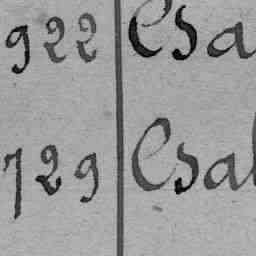 922 Csa
729 Csal